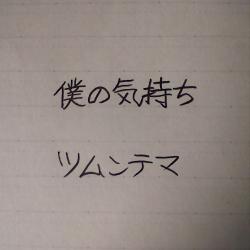 僕の気持ち
ツムンテマ